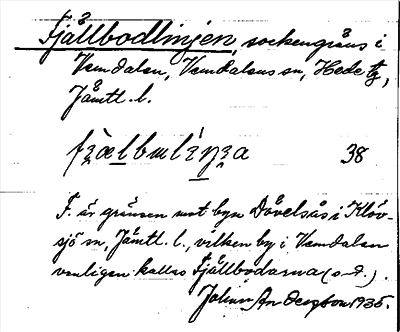 Fjällbodlinjen, sockengräns i
Vemdalen, Vemdalens sn, Hede tg,
Jämtl. l.
38
F. är gränsen mot byn Dövelsås i Klöv-
sjö sn, Jämtl. l., vilken by i Vemdalen
vanligen kallas Fjällbodarna (s. d.).
Johan Anderson 1935.